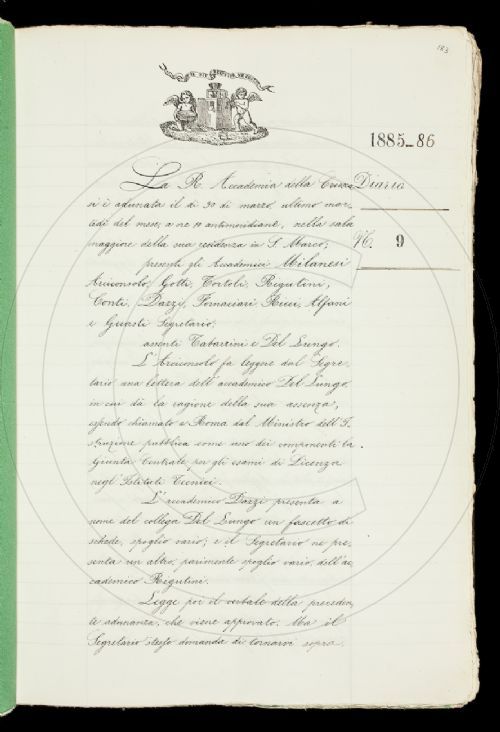 183
1885-86
Diario
N. 9
La R. Accademia della Crusca
si è adunata il dì 30 di marzo, ultimo mar-
tedì del mese, a ore 10 antimeridiane, nella sala
maggiore della sua residenza in S. Marco;
presenti gli Accademici Milanesi
Arciconsolo, Gotti, Tortoli, Rigutini,
Conti, Dazzi, Fornaciari, Ricci, Alfani
e Guasti Segretario;
assenti Tabarrini e Del Lungo.
L'Arciconsolo fa leggere dal Segre-
tario una lettera dell'accademico Del Lungo,
in cui dà la ragione della sua assenza,
essendo chiamato a Roma dal Ministro dell'I-
struzione pubblica come uno dei componenti la
Giunta Centrale per gli esami di Licenza
negl'Istituti Tecnici.
L'accademico Dazzi presenta a
nome del collega Del Lungo un fascetto di
schede, spoglio vario; e il Segretario ne pre-
senta un altro, parimente spoglio vario, dell'ac-
cademico Rigutini.
Legge poi il verbale della preceden-
te adunanza, che viene approvato. Ma il
Segretario stesso domanda di tornarvi sopra,